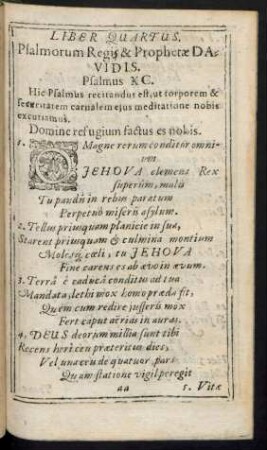 LIBER QUARTUS.
Psalmorum Regis & Prophetæ DA-
VIDIS.
Psalmus XC.
Hic Psalmus recitandus est, ut torporem &
securitatem carnalem ejus meditatione nobis
excutiamus.
Domine refugium factus es nobis.
1. O Magne rerum conditor omni-
um
JEHOVA clemens Rex
superûm, malis
Tu pandis in rebus paratum
Perpetuò miseris asylum.
2. Tellus priusquam planicie in sua,
Starent priusquam & culmina montium
Molesq; cœli, tu JEHOVA
Fine carens es ab ævo in ævum.
3. Terrâ è caducâ conditus ad tua
Mandata, lethi mox homo præda fit,
Quem cum redire jusseris mox
Fert caput aërias in auras.
4. DEUS deorum millia sunt tibi
Recens heri ceu præteritus dies,
Vel una ceu de quatuor pars
Quam statione vigil peregit
aa 5. Vitæ